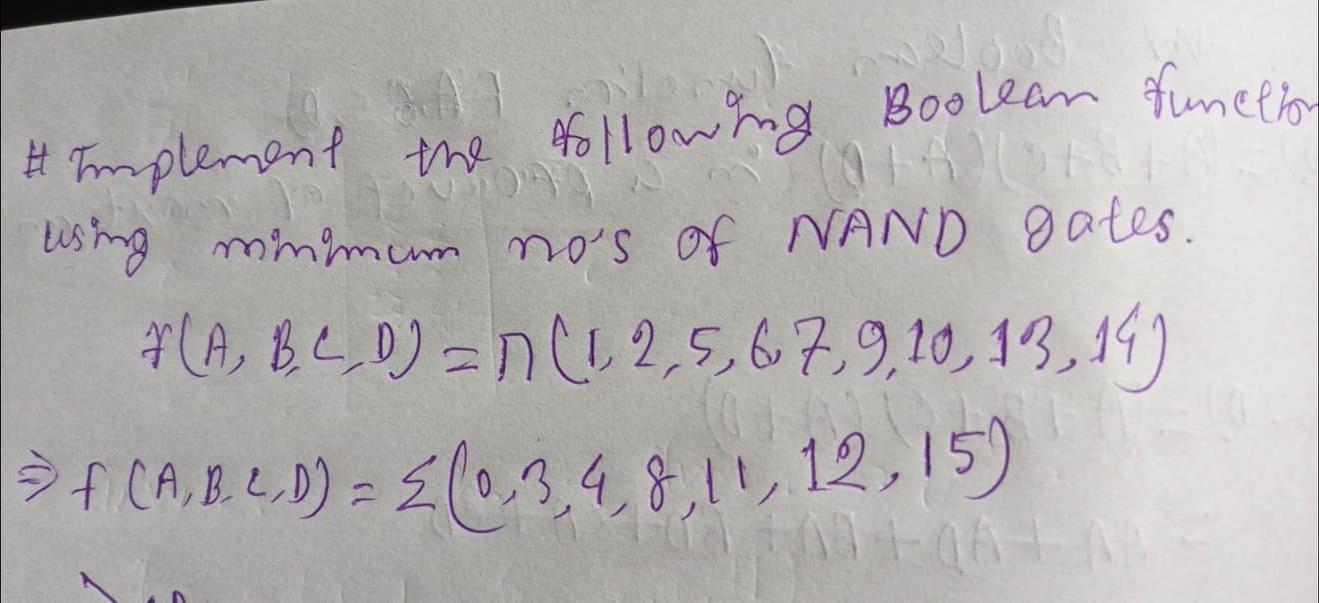 # Implement the following Boolean function
using minimum no's of NAND gates.
f(A, B, C, D) = π(1, 2, 5, 6, 7, 9, 10, 13, 14)
⇒ f(A, B, C, D) = Σ(0, 3, 4, 8, 11, 12, 15)